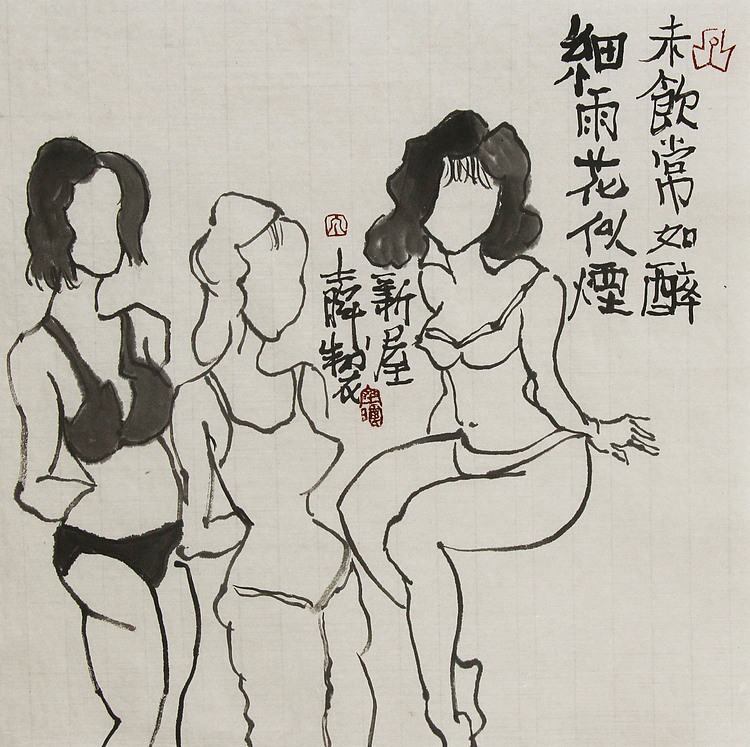 未飲常如醉
細雨花似煙
新屋